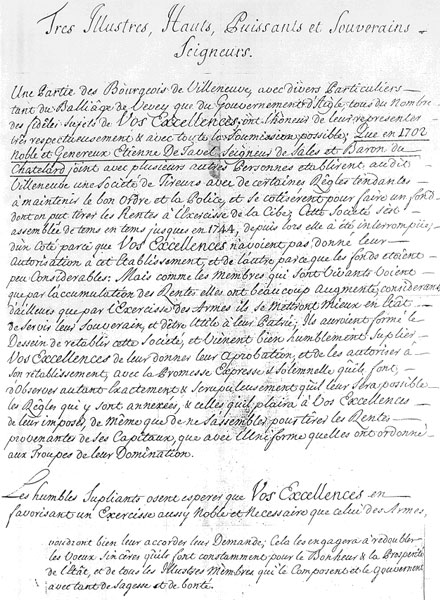 Tres Illustres, Hauts, Puissants et Souverains
Seigneurs.
Une Partie des Bourgeois de Villeneuve, avec divers Particuliers
tant du Balliage de Vevey que du Gouvernement d'Aigle, tous du Nombre
des fideles sujets de Vos Excellences, ont l'honeur de leur representer
très respectueusement & avec toute la Soumission possible; Que en 1702
noble et Genereux Etienne De Tavel, Seigneur de Sales et Baron du
Chatelard joint avec plusieurs autres Personnes etablirent audit
Villeneuve une Société de Tireurs avec de certaines Régles tendantes
à maintenir le bon Ordre et la Police, et se cottiserent pour faire un fond
dont on put tirer les Rentes à l'Exercise de la Cible; Cette Societé s'est
assemblée de tems en tems jusques en 1744, depuis lors elle a été interrompüe;
d'un Coté parce que Vos Excellences n'avoient pas donné leur
Autorisation à cet Etablissement, et de l'autre parce que les fonds etoient
peu Considerables: Mais comme les Membres qui sont vivants voient
que par l'accumulation des Rentes elles ont beaucoup Augmenté, considerans
d'ailleurs que par l'Exercise des Armes ils se mettront mieux en Etat
de Servir leur Souverain, et d'être Utile à leur Patrie; Ils auroient formé le
Dessein de retablir cette Societé, et vienent bien humblement Suplier
Vos Excellences de leur donner leur aprobation, et de les autoriser à
son rétablissement, avec la Promesse Expresse & Solemnelle qu'ils font,
d'Observer autant exactement & Scrupuleusement qu'il leur sera possible
les Régles qui y sont annexées, & celles qu'il plaira à Vos Excellences
de leur imposer, de Même que de ne s'assembler pour tirer les Rentes
provenantes de ses Capitaux, que avec l'Uniforme qu'elles ont ordonné
aux Troupes de leur Domination.
Les humbles Supliants osent esperer que Vos Excellences en
favorisant un Exercise aussy Noble et Necessaire que celui des Armes,
voudront bien leur accorder leur Demande; Cela les engagera à redoubler
les Voeux Sincères qu'ils font constamment pour le Bonheur & la Prosperité
de l'Etat, et de tous les Illustres Membres qui le Composent et le Gouvernent
avec tant de Sagesse et de bonté.